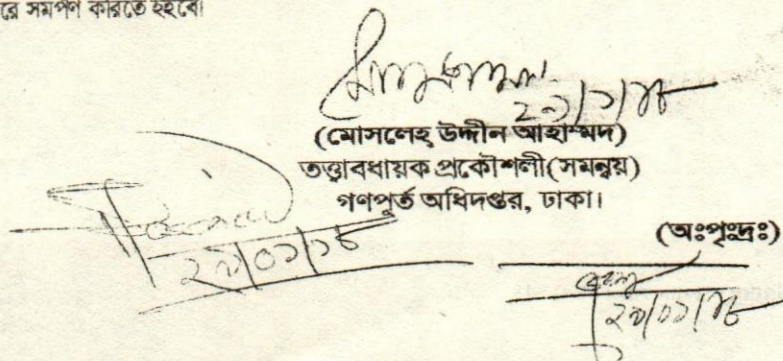 রে সমর্পণ করিতে হইবে।
২৯/১/১৮
(মোসলেহ উদ্দীন আহাম্মদ)
তত্ত্বাবধায়ক প্রকৌশলী(সমন্বয়)
গণপূর্ত অধিদপ্তর, ঢাকা।
(অঃপৃঃদ্রঃ)
২৯/০১/১৮
২৯/০১/১৮